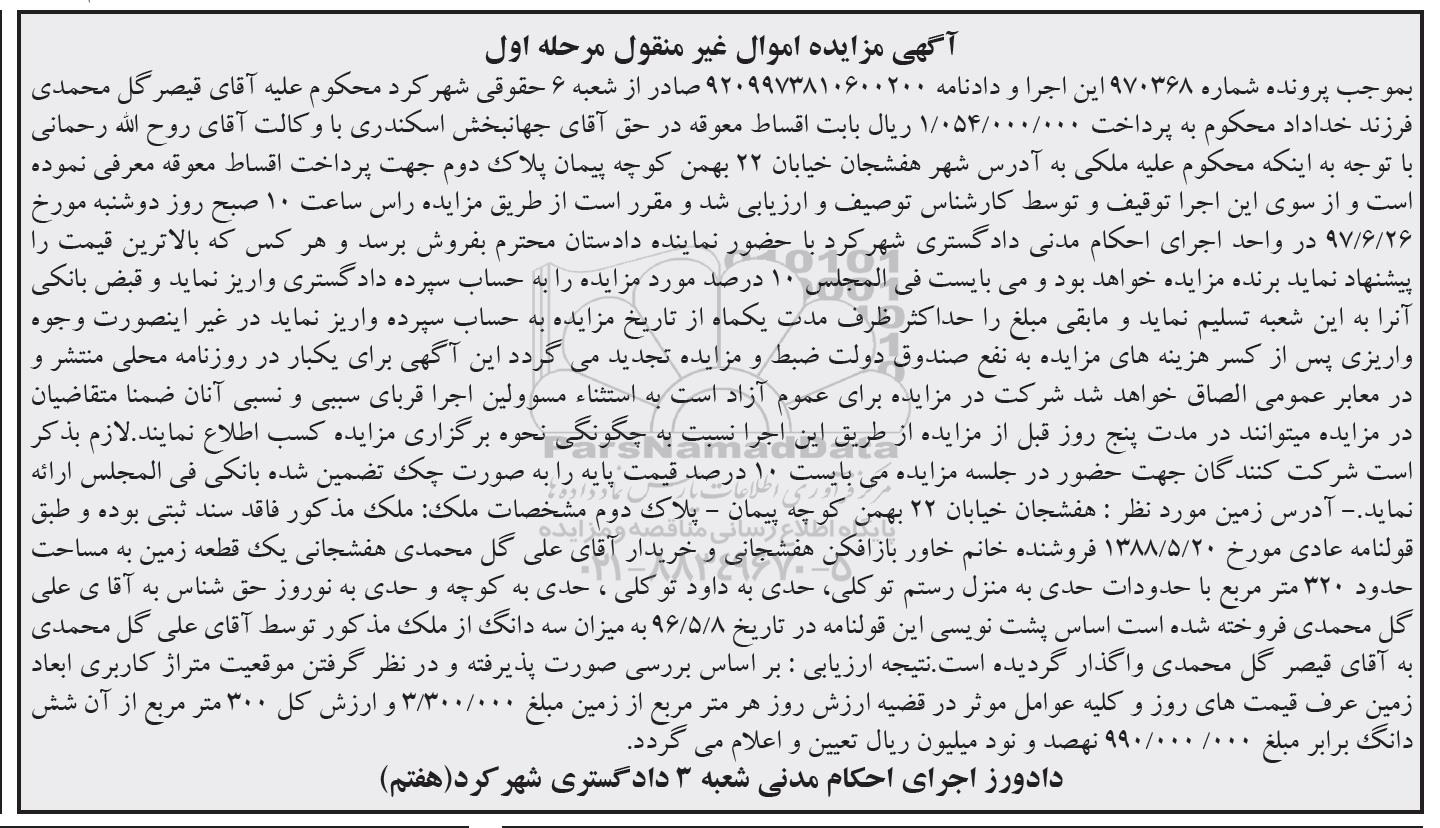 آگهی مزایده اموال غیر منقول مرحله اول
بموجب پرونده شماره ۹۷۰۳۶۸ این اجرا و دادنامه ۹۲۰۹۹۷۳۸۱۰۶۰۰۲۰۰ صادر از شعبه ۶ حقوقی شهرکرد محکوم علیه آقای قیصرگل محمدی
فرزند خداداد محکوم به پرداخت ۱/۰۵۴/۰۰۰/۰۰۰ ریال بابت اقساط معوقه در حق آقای جهانبخش اسکندری با وکالت آقای روح الله رحمانی
با توجه به اینکه محکوم علیه ملکی به آدرس شهر هفشجان خیابان ۲۲ بهمن کوچه پیمان پلاک دوم جهت پرداخت اقساط معوقه معرفی نموده
است و از سوی این اجرا توقیف و توسط کارشناس توصیف و ارزیابی شد و مقرر است از طریق مزایده راس ساعت ۱۰ صبح روز دوشنبه مورخ
۹۷/۶/۲۶ در واحد اجرای احکام مدنی دادگستری شهرکرد با حضور نماینده دادستان محترم بفروش برسد و هر کس که بالاترین قیمت را
پیشنهاد نماید برنده مزایده خواهد بود و می بایست فی المجلس ۱۰ درصد مورد مزایده را به حساب سپرده دادگستری واریز نماید و قبض بانکی
آنرا به این شعبه تسلیم نماید و مابقی مبلغ را حداکثر ظرف مدت یکماه از تاریخ مزایده به حساب سپرده واریز نماید در غیر اینصورت وجوه
واریزی پس از کسر هزینه های مزایده به نفع صندوق دولت ضبط و مزایده تجدید می گردد این آگهی برای یکبار در روزنامه محلی منتشر و
در معابر عمومی الصاق خواهد شد شرکت در مزایده برای عموم آزاد است به استثناء مسوولین اجرا قربای سببی و نسبی آنان ضمنا متقاضیان
در مزایده میتوانند در مدت پنج روز قبل از مزایده از طریق این اجرا نسبت به چگونگی نحوه برگزاری مزایده کسب اطلاع نمایند.لازم بذکر
است شرکت کنندگان جهت حضور در جلسه مزایده می بایست ۱۰ درصد قیمت پایه را به صورت چک تضمین شده بانکی فی المجلس ارائه
نماید.- آدرس زمین مورد نظر : هفشجان خیابان ۲۲ بهمن کوچه پیمان - پلاک دوم مشخصات ملک: ملک مذکور فاقد سند ثبتی بوده و طبق
قولنامه عادی مورخ ۱۳۸۸/۵/۲۰ فروشنده خانم خاور بازافکن هفشجانی و خریدار آقای علی گل محمدی هفشجانی یک قطعه زمین به مساحت
حدود ۳۲۰ متر مربع با حدودات حدی به منزل رستم توکلی، حدی به داود توکلی ، حدی به کوچه و حدی به نوروز حق شناس به آقا ی علی
گل محمدی فروخته شده است اساس پشت نویسی این قولنامه در تاریخ ۹۶/۵/۸ به میزان سه دانگ از ملک مذکور توسط آقای علی گل محمدی
به آقای قیصر گل محمدی واگذار گردیده است.نتیجه ارزیابی : بر اساس بررسی صورت پذیرفته و در نظر گرفتن موقعیت متراژ کاربری ابعاد
زمین عرف قیمت های روز و کلیه عوامل موثر در قضیه ارزش روز هر متر مربع از زمین مبلغ ۳/۳۰۰/۰۰۰ و ارزش کل ۳۰۰ متر مربع از آن شش
دانگ برابر مبلغ ۹۹۰/۰۰۰ /۰۰۰ نهصد و نود میلیون ریال تعیین و اعلام می گردد.
دادورز اجرای احکام مدنی شعبه ۳ دادگستری شهرکرد(هفتم)
ParsNamadData
مرکز فرآوری اطلاعات پارس نماد داده ها
پایگاه اطلاع رسانی مناقصه و مزایده
۰۲۱-۸۸۳۴۹۶۷۰-۵